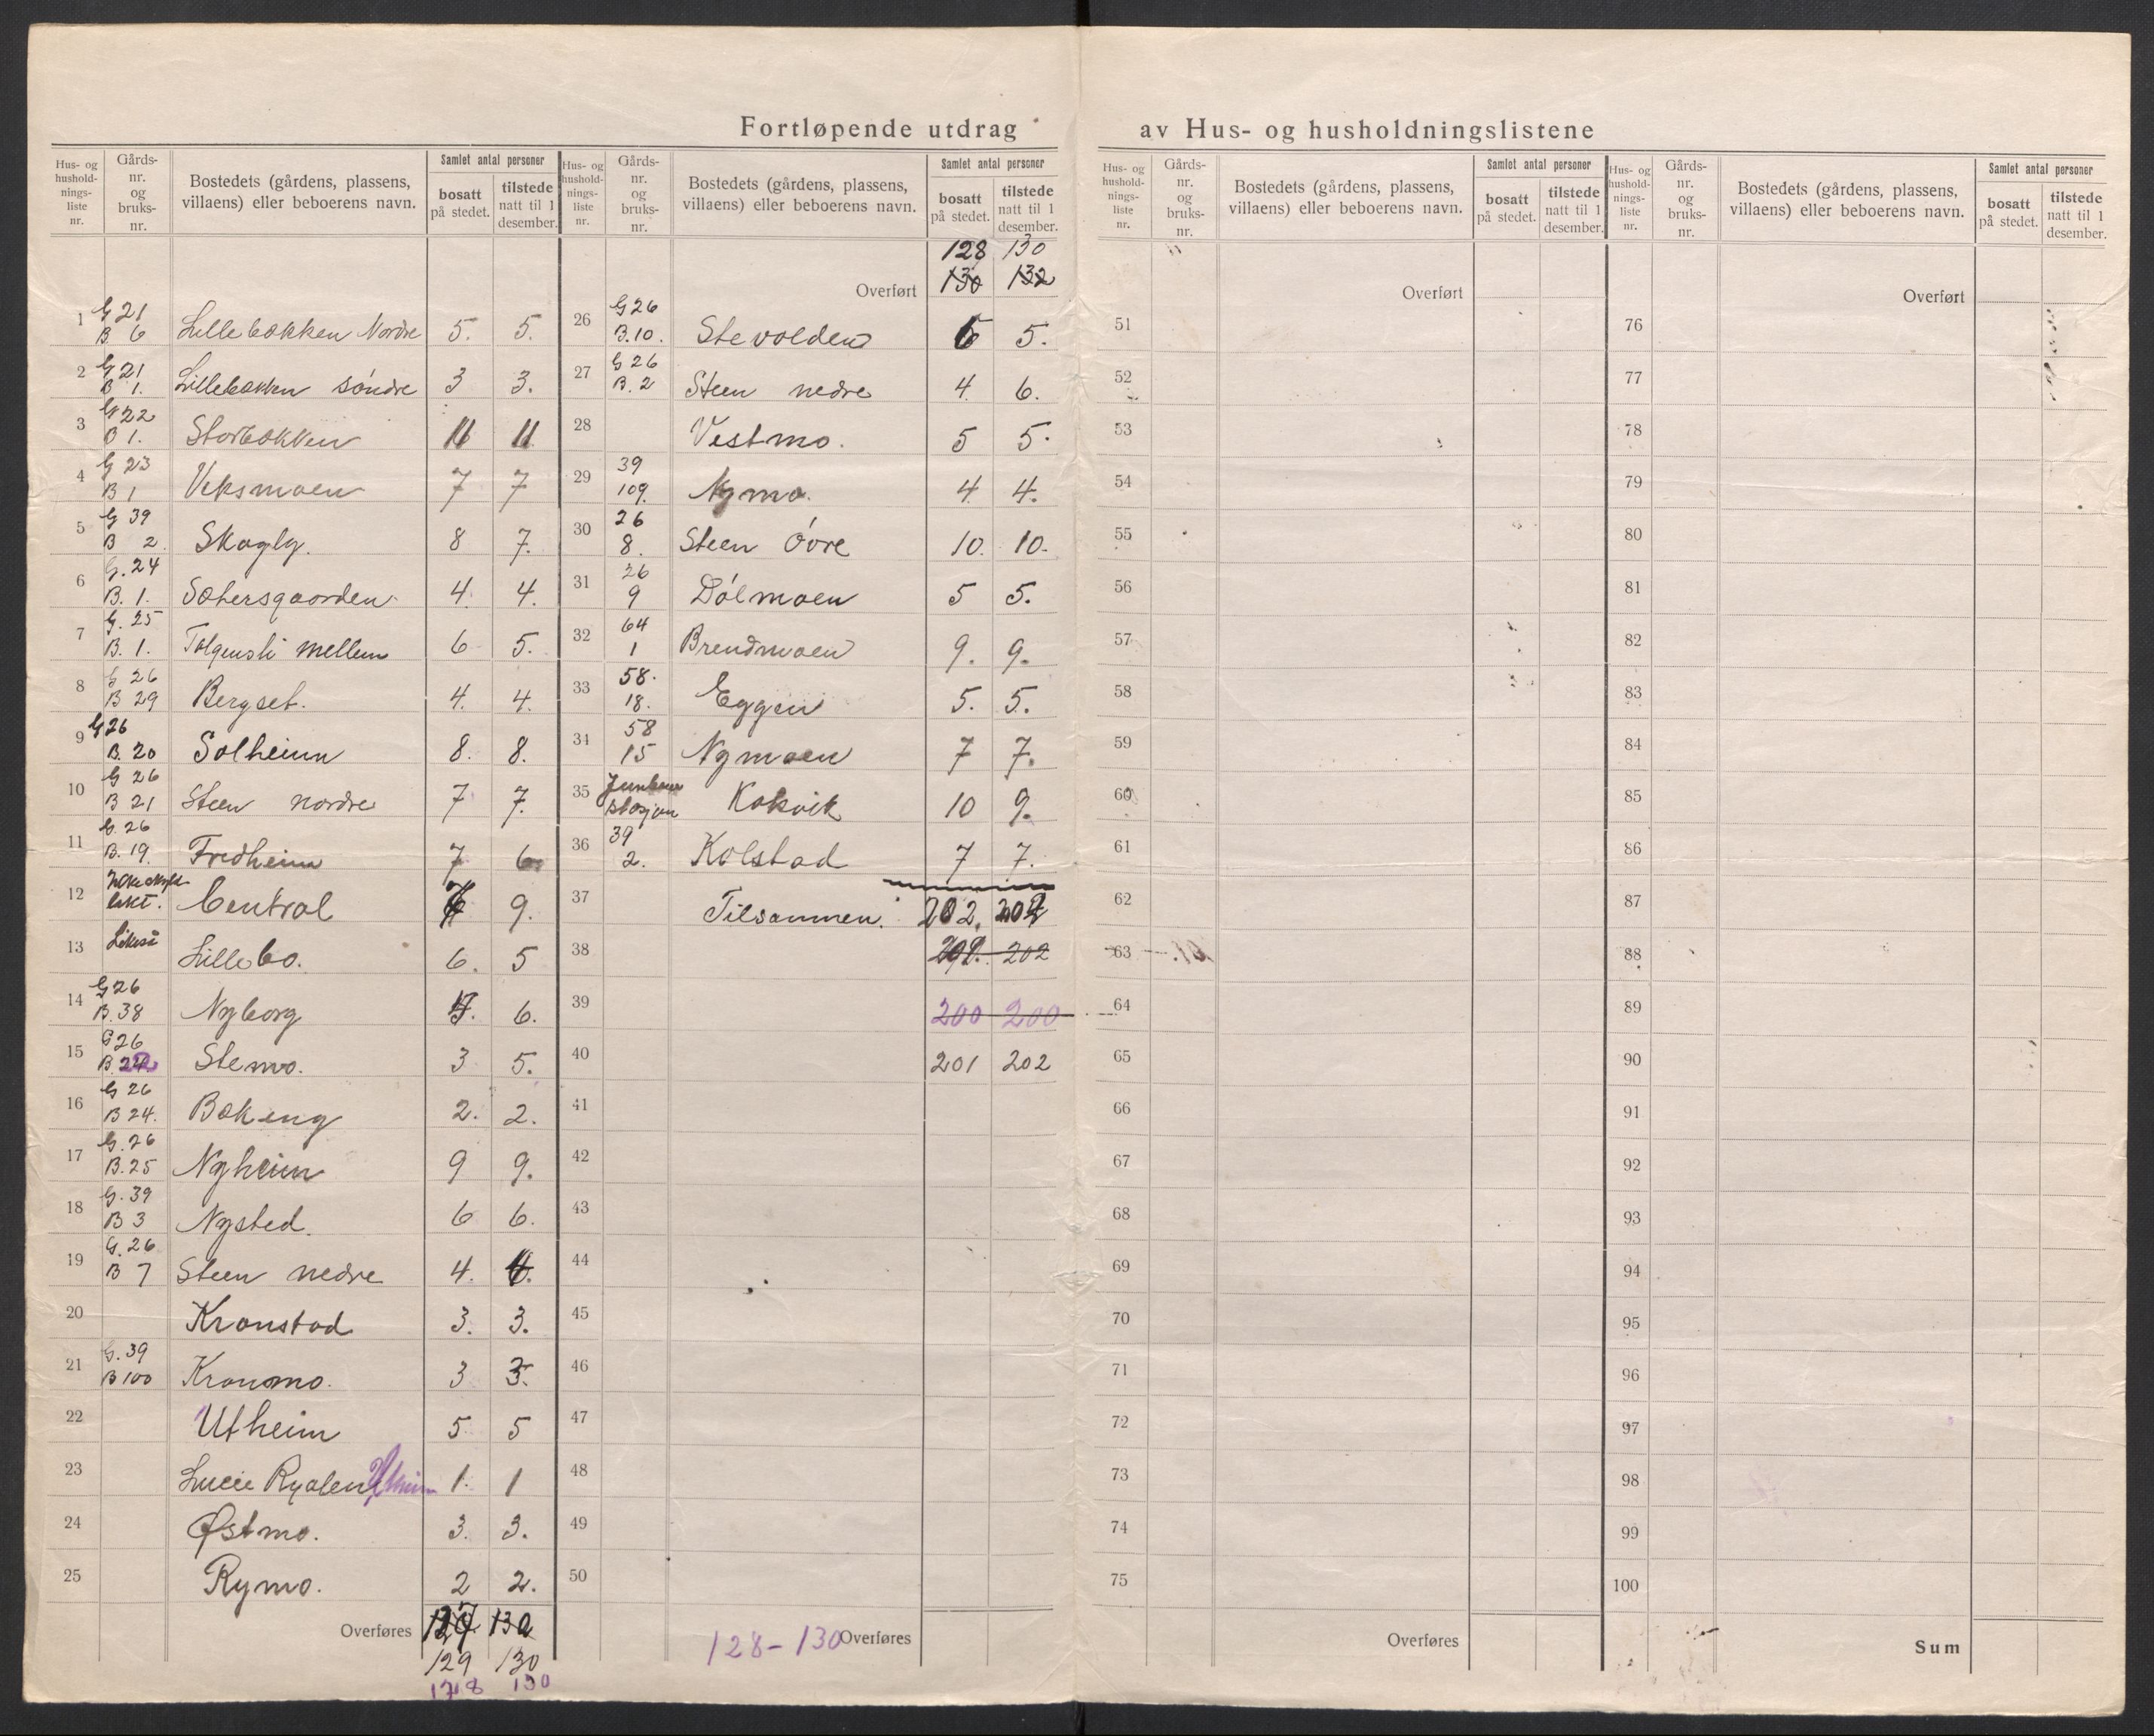 Fortløpende utdrag av Hus- og husholdningslistene
Hus- og hushold-nings-liste nr. Gårds-nr. og bruks-nr. Bostedets (gårdens, plassens, villaens) eller beboerens navn. Samlet antal personer bosatt på stedet. tilstede natt til 1 desember.
1 G 21 B. 6 Lillebækken Nordre 5. 5.
2 G 21 B 1. Lillebækken søndre 3 3.
3 G 22 B 1. Storbækken 11 11
4 G 23 B 1 Veksmoen 7 7
5 G 39 B 2. Skogly. 8 7.
6 G. 24 B. 1. Sætersgaarden. 4. 4.
7 G. 25 B. 1. Tolgensli mellem 6 5.
8 G 26 B 29 Bergset. 4. 4.
9 G 26 B. 20 Solheim 8. 8.
10 G 26 B 21 Steen nordre 7 7.
11 G. 26 B. 19. Fredheim 7 6.
12 Central 9.
13 Lillebo. 6. 5
14 G 26 B. 38 Nyborg 6.
15 G 26 B. 22 Stemo. 3 5.
16 G 26 B 24. Bækeng 2. 2.
17 G. 26 B. 25 Nyheim 9 9.
18 G. 39 B 3 Nysted. 6 6.
19 G. 26 B 7 Steen nedre 4.
20 Kronstad 3. 3.
21 G. 39 B 100 Kronmo. 3 3.
22 Utheim 5 5
23 Lucie Ryalen 1. 1
24 Østmo. 3. 3.
25 Rymo. 2 2.
Overføres 130
129 130
128 130
Hus- og hushold-nings-liste nr. Gårds-nr. og bruks-nr. Bostedets (gårdens, plassens, villaens) eller beboerens navn. Samlet antal personer bosatt på stedet. tilstede natt til 1 desember.
128 130
Overført 130 132
26 G 26 B. 10. Stevolden 5.
27 G 26 B. 2 Steen nedre 4. 6.
28 Vestmo. 5 5.
29 39 109. Nymo. 4 4.
30 26 8. Steen Øvre 10. 10.
31 26 9 Dølmoen 5 5.
32 64 1 Brendmoen 9. 9.
33 58. 18. Eggen 5. 5.
34 58 15 Nymoen 7 7.
35 stasjon Kokvik 10 9.
36 39 2. Kolstad 7 7.
37 Tilsammen. 202. 202
38 202
39 200 200
40 201 202
41
42
43
44
45
46
47
48
49
50
128 - 130 Overføres
Hus- og hushold-nings-liste nr. Gårds-nr. og bruks-nr. Bostedets (gårdens, plassens, villaens) eller beboerens navn. Samlet antal personer bosatt på stedet. tilstede natt til 1 desember.
Overført
51
52
53
54
55
56
57
58
59
60
61
62
63
64
65
66
67
68
69
70
71
72
73
74
75
Overføres
Hus- og hushold-nings-liste nr. Gårds-nr. og bruks-nr. Bostedets (gårdens, plassens, villaens) eller beboerens navn. Samlet antal personer bosatt på stedet. tilstede natt til 1 desember.
Overført
76
77
78
79
80
81
82
83
84
85
86
87
88
89
90
91
92
93
94
95
96
97
98
99
100
Sum